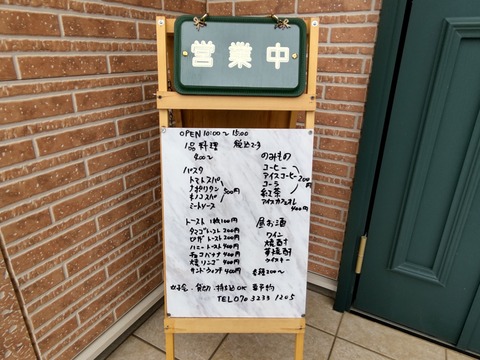 営業中
OPEN 10:00〜15:00
1品料理
400〜
パスタ
トマトスパ
ナポリタン
キノコスパ
ミートソース
500円
トースト 1枚100円
タマゴトースト 200円
ピザトースト 200円
ハニートースト 400円
チョコバナナ 400円
焼リンゴ 400円
サンドウィッチ 400円
のみもの
コーヒー
アイスコーヒー
コーラ
紅茶
200円
アイスカフェオレ
400円
昼お酒
ワイン
焼酎
芋焼酎
ウイスキー
各種300〜
女子会・貸切・持込OK 要予約
TEL 070 3233 1205